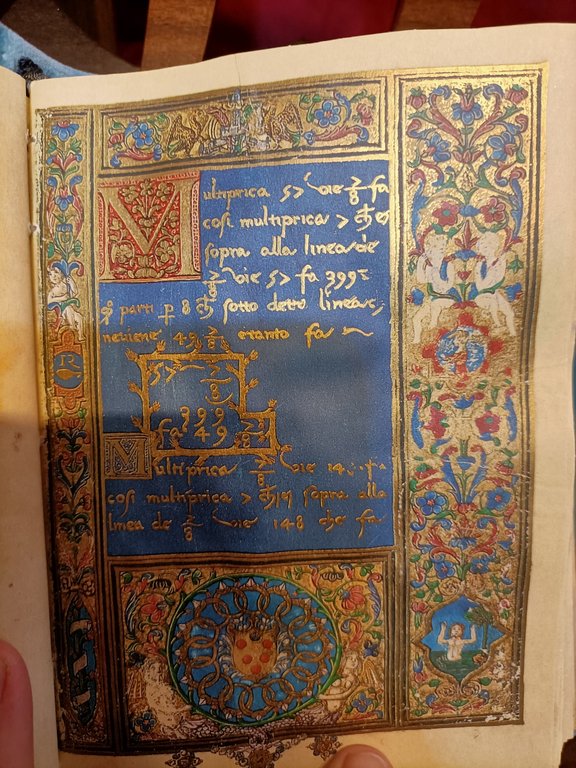 Multiprica 57 vie 7/8 fa
cosi multiprica 7 ch e
sopra alla linea de
7/8 vie 57 fa 399 e
parti p 8 sotto detta linea
neviene 49 7/8 e tanto fa
57 7/8
399
fa 49 7/8
Multiprica 7/8 vie 14 fa
cosi multiprica 7 sopra alla
linea de 7/8 vie 148 che fa
R